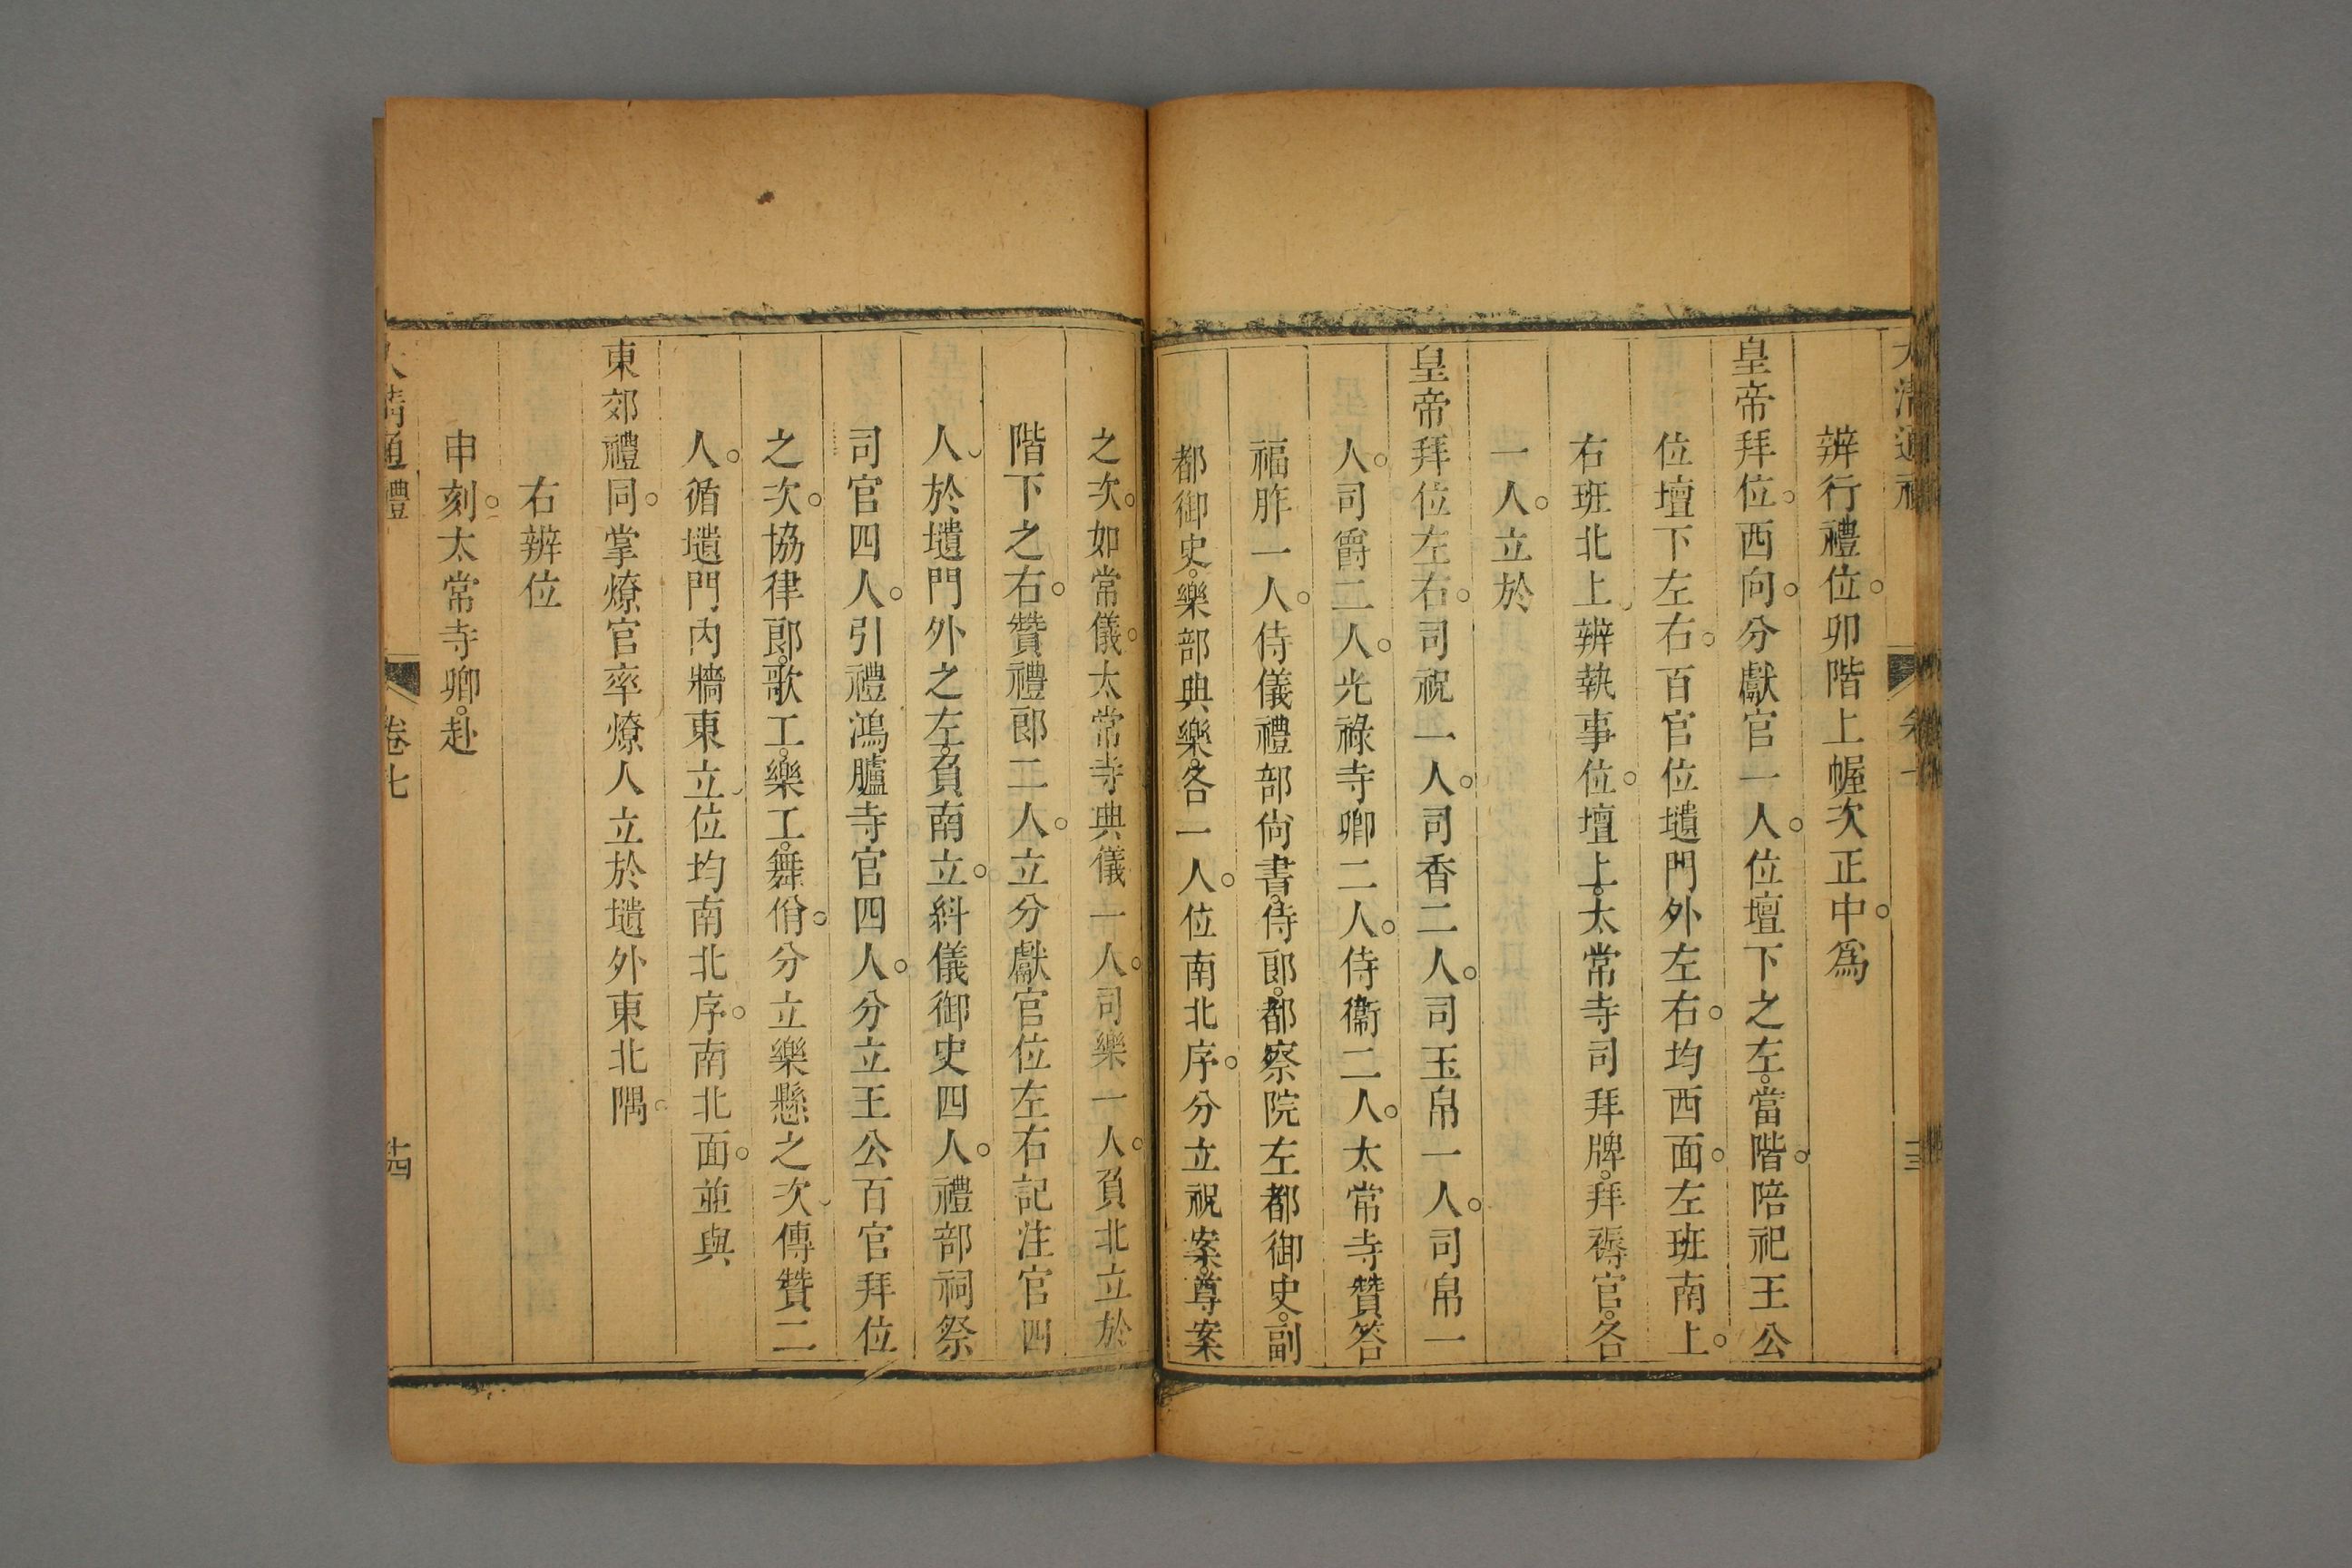 大清通禮 卷七 十三
辨行禮位。卯階上幄次正中。爲
皇帝拜位。西向。分獻官一人。位壇下之左。當階。陪祀王公
位壇下左右。百官位壝門外左右。均西面。左班南上。
右班北上、辨執事位。壇上。太常寺司拜牌。拜褥官。各
一人。立於
皇帝拜位左右。司祝一人。司香二人。司玉帛一人。司帛一
人。司爵二人。光祿寺卿二人。侍衞二人。太常寺贊答
福胙一人。侍儀禮部尙書。侍郎。都察院左都御史。副
都御史。樂部典樂。各一人。位南北序。分立祝案。尊案
之次。如常儀。太常寺典儀一人。司樂一人。負北立於
階下之右。贊禮郎二人。立分獻官位左右記注官四
人、於壝門外之左。負南立。糾儀御史四人。禮部祠祭
司官四人。引禮鴻臚寺官四人。分立王公百官拜位
之次。協律郎。歌工。樂工。舞佾。分立樂懸之次、傳贊二
人。循壝門內牆東立、位均南北序。南北面。並與
東郊禮同。掌燎官率燎人立於壝外東北隅。
右辨位
申刻。太常寺卿。赴
大清通禮 卷七 十四